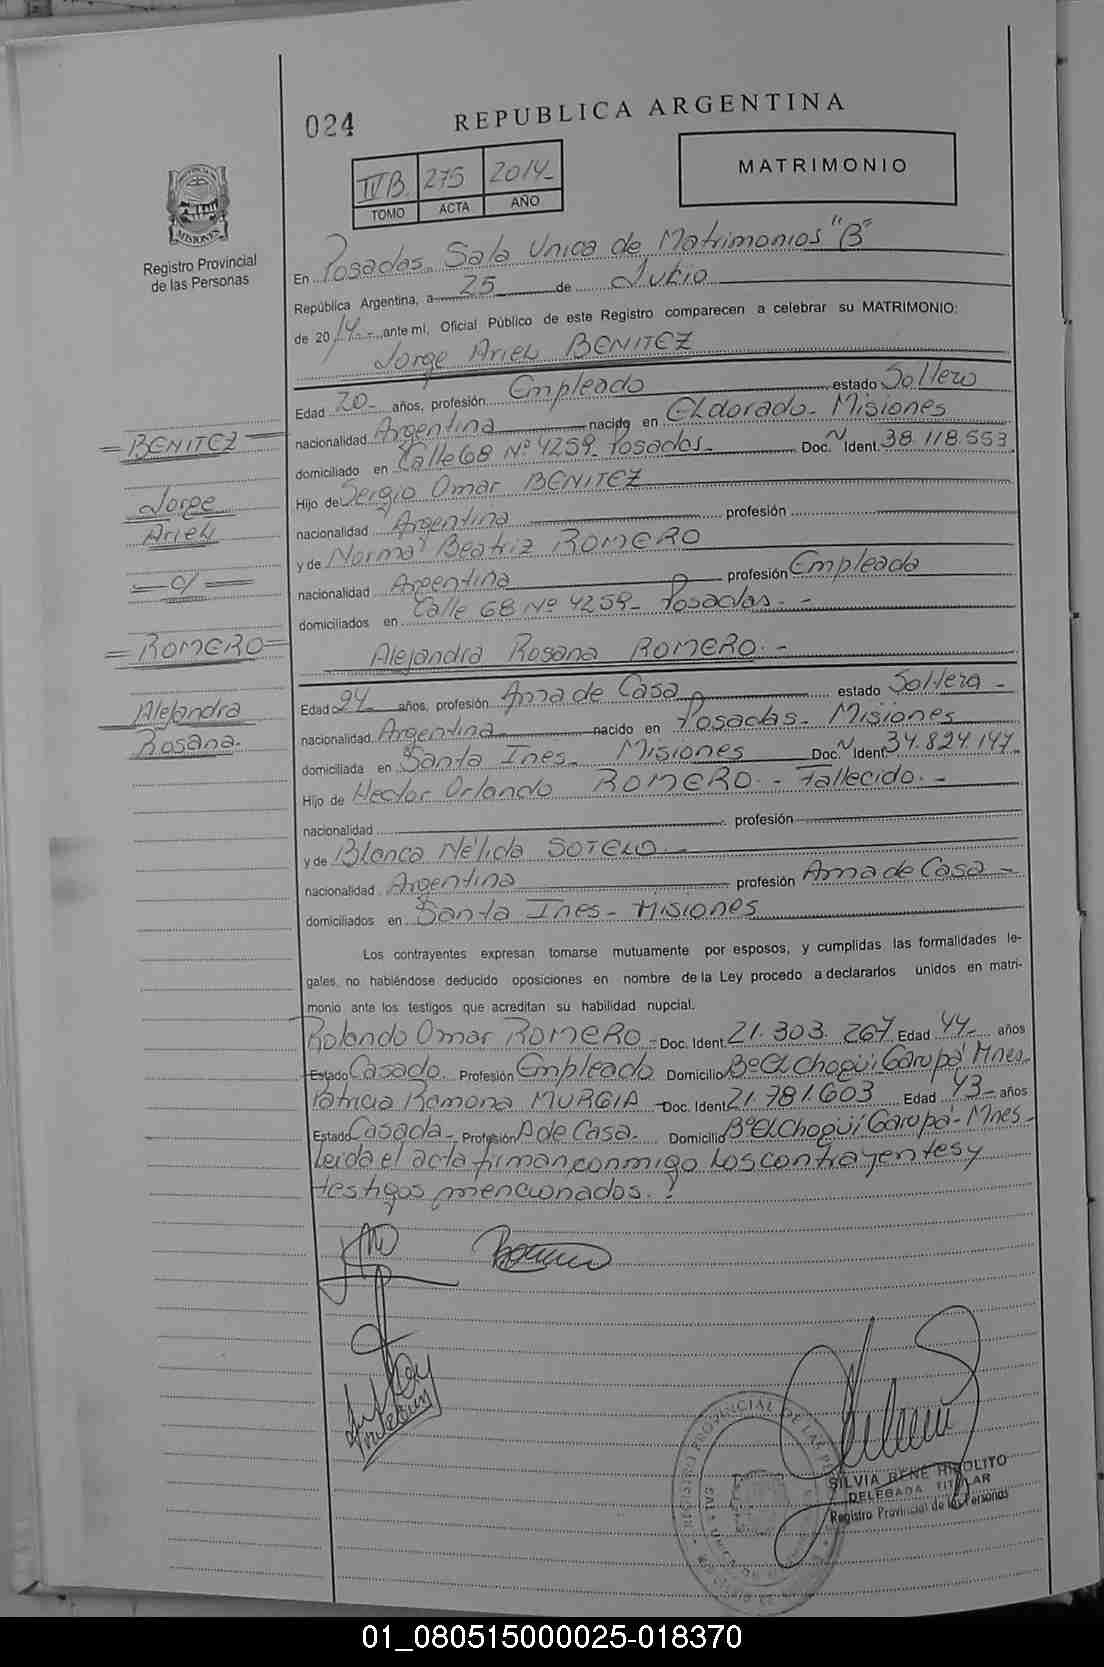 024
REPUBLICA ARGENTINA
MATRIMONIO
IVB 275 2014-
TOMO ACTA AÑO
MISIONES
Registro Provincial
de las Personas
En Posadas. Sala Unica de Matrimonios "B"
República Argentina, a 25 de Julio
de 2014.- ante mi, Oficial Público de este Registro comparecen a celebrar su MATRIMONIO:
Jorge Ariel BENITEZ
Edad 20- años, profesión Empleado estado Soltero
nacionalidad Argentina nacido en Eldorado- Misiones
domiciliado en Calle 68 Nº 4259- Posadas.- Doc. N Ident. 38.118.553
Hijo de Sergio Omar BENITEZ
nacionalidad Argentina profesión
y de Norma Beatriz ROMERO
nacionalidad Argentina profesión Empleada
domiciliados en Calle 68 Nº 4259- Posadas.- -
=BENITEZ=
Jorge
Ariel
=c/=
=ROMERO=
Alejandra
Rosana.
Alejandra Rosana ROMERO.-
Edad 24 años, profesión Ama de Casa estado Soltera-
nacionalidad Argentina nacido en Posadas- Misiones
domiciliada en Santa Ines- Misiones Doc. N Ident. 34.824.147.
Hijo de Hector Orlando ROMERO.- Fallecido.-
nacionalidad profesión
y de Blanca Nélida SOTELO.-
nacionalidad Argentina profesión Ama de Casa-
domiciliados en Santa Ines- Misiones
Los contrayentes expresan tomarse mutuamente por esposos, y cumplidas las formalidades le-
gales, no habiéndose deducido oposiciones en nombre de la Ley procedo a declararlos unidos en matri-
monio ante los testigos que acreditan su habilidad nupcial.
Rolando Omar ROMERO- Doc. Ident. 21.303.267 Edad 44- años
Estado Casado. Profesión Empleado Domicilio Bº El Chogüi Garupá Mnes.
Patricia Ramona MURGIA- Doc. Ident. 21.781.603 Edad 43- años
Estado Casada- Profesión A de Casa. Domicilio Bº El Chogüi Garupá- Mnes-
Leida el acta firman conmigo los contrayentes y
testigos mencionados.
SILVIA RENE HIPOLITO
DELEGADA TITULAR
Registro Provincial de las Personas
01_080515000025-018370